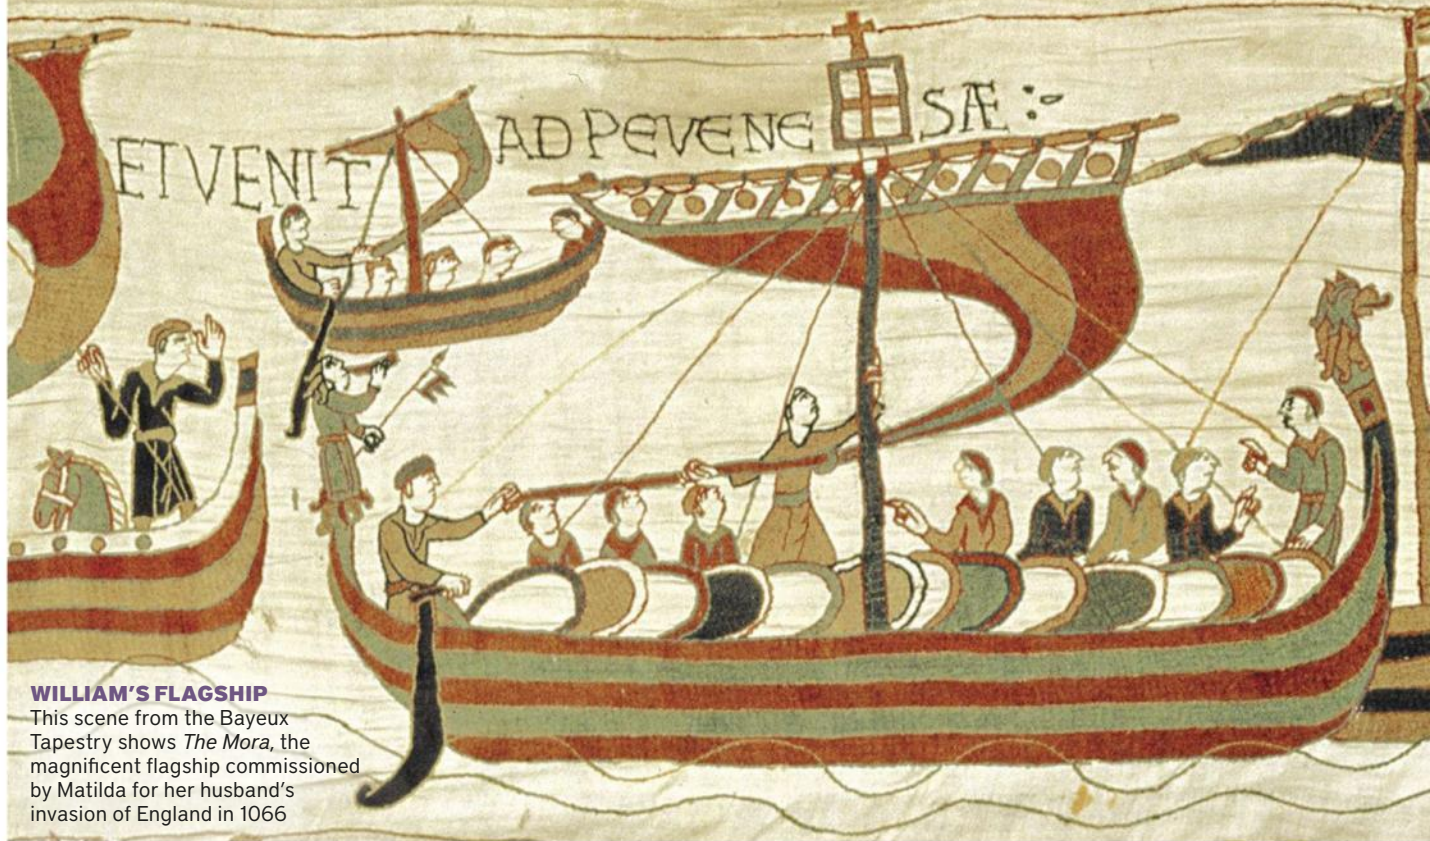 ET VENIT AD PEVENE SÆ :~
WILLIAM'S FLAGSHIP
This scene from the Bayeux
Tapestry shows The Mora, the
magnificent flagship commissioned
by Matilda for her husband's
invasion of England in 1066